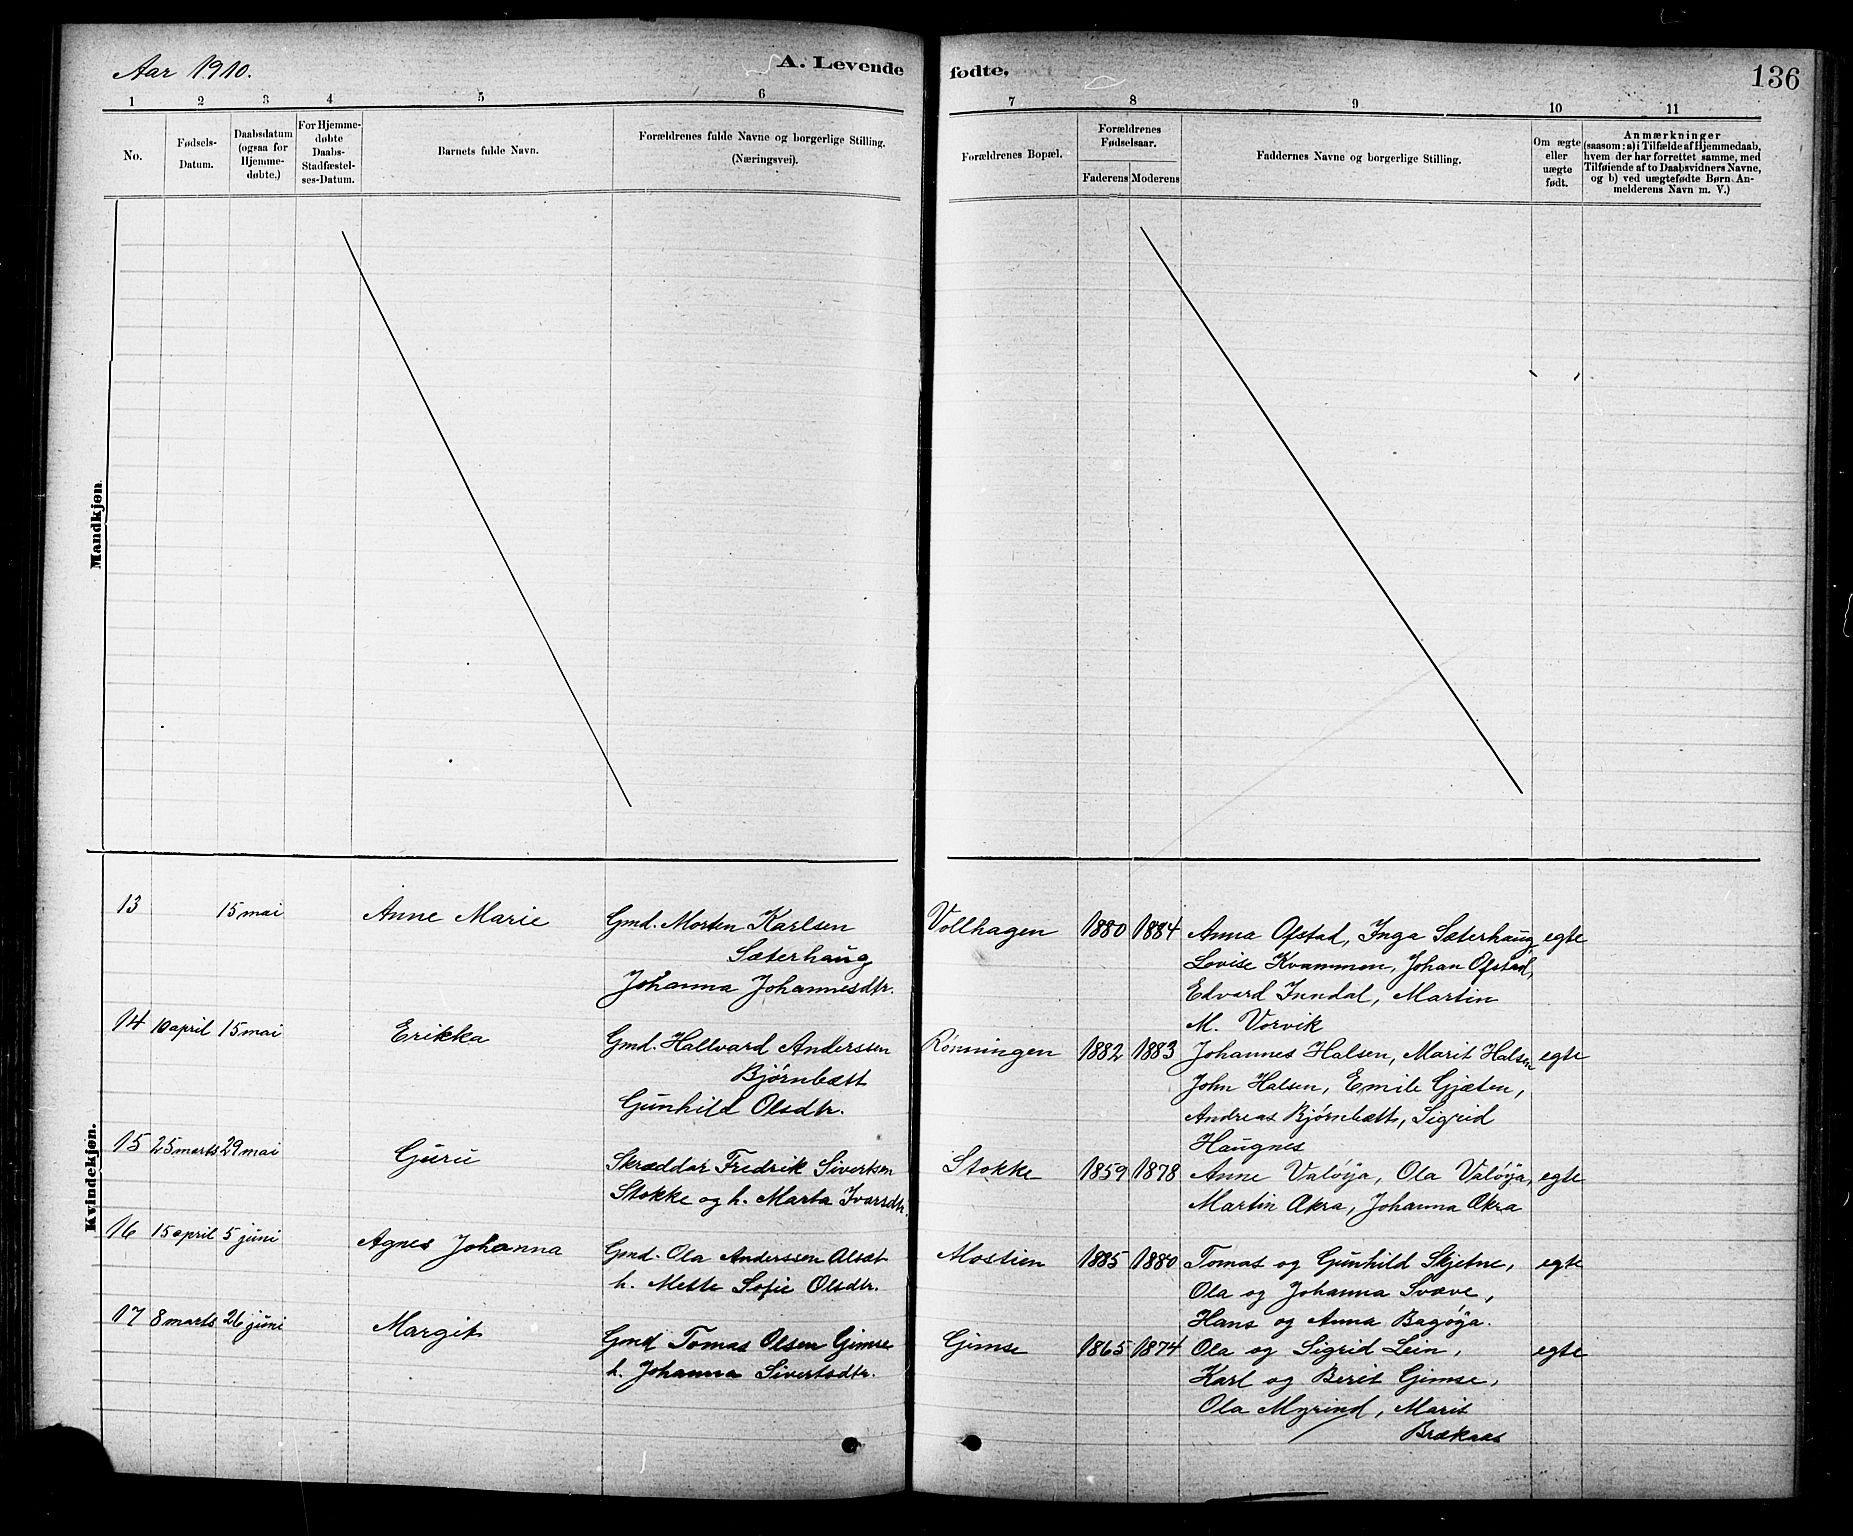 Aar 1910.
A. Levende fødte,
136
1 2 3 4 5 6 7 8 9 10 11
No.
Fødsels-
Datum.
Daabsdatum
(ogsaa for
Hjemme-
døbte.)
For Hjemme-
døbte
Daabs-
Stadfæstel-
ses-Datum.
Barnets fulde Navn.
Forældrenes fulde Navne og borgerlige Stilling.
(Næringsvei).
Forældrenes Bopæl.
Forældrenes
Fødselsaar.
Faderens Moderens
Faddernes Navne og borgerlige Stilling.
Om ægte
eller
uægte
født.
Anmærkninger
(saasom: a) i Tilfælde af Hjemmedaab,
hvem der har forrettet samme, med
Tilføiende af to Daabsvidners Navne,
og b) ved uægtefødte Børn An-
melderens Navn m. V.)
Mandkjøn
Kvindekjøn.
13 15 mai Anne Marie Gmd. Morten Karlsen
Sæterhaug
Johanna Johannesdtr.
Vollhagen 1880 1884 Anna Ofstad, Inga Sæterhaug egte
Lovise Kvammen, Johan Ofstad,
Edvard Inndal, Martin
M. Vorvik
14 10 april 15 mai Erikka Gmd. Hallvard Anderssen
Bjørnbætt
Gunhild Olsdtr.
Rønningen 1882 1883 Johannes Halsen, Marit Halsen egte
John Halsen, Emile Gjæten,
Andreas Bjørnbætt, Sigrid
Haugnes
15 25 marts 29 mai Guru Skrædder Fredrik Sivertsen
Stokke og h. Marta Ivarsdtr.
Stokke 1859 1878 Anne Valøya, Ola Valøya, egte
Martin Økra, Johanna Økra
16 15 april 5 juni Agnes Johanna Gmd. Ola Anderssen Alsæt
h. Mette Sofie Olsdtr.
Mostien 1885 1880 Tomas og Gunhild Skjetne, egte
Ola og Johanna Svæve,
Hans og Anna Bagøya.
17 8 marts 26 juni Margit Gmd Tomas Olsen Gimse
h. Johanna Sivertsdtr.
Gimse 1865 1874 Ola og Sigrid Lein, egte
Karl og Berit Gimse,
Ola Myrind, Marit
Brækaas